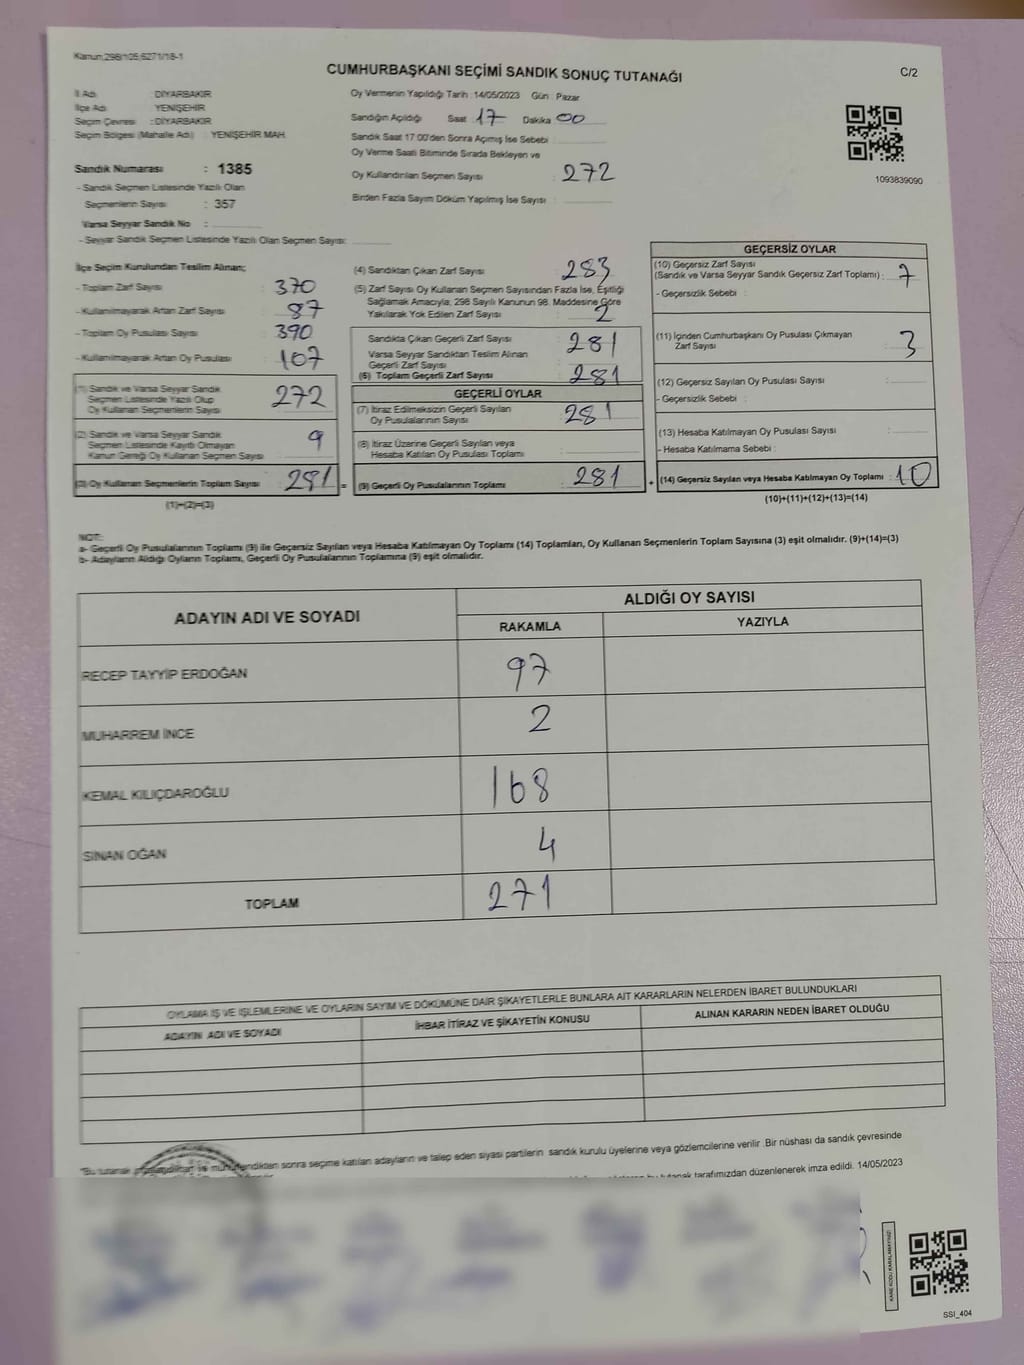 Kanun,298/105,6271/18-1
CUMHURBAŞKANI SEÇİMİ SANDIK SONUÇ TUTANAĞI
C/2
İl Adı : DİYARBAKIR
İlçe Adı : YENİŞEHİR
Seçim Çevresi : DİYARBAKIR
Seçim Bölgesi (Mahalle Adı) : YENİŞEHİR MAH.
Sandık Numarası : 1385
- Sandık Seçmen Listesinde Yazılı Olan
Seçmenlerin Sayısı : 357
Varsa Seyyar Sandık No :
- Seyyar Sandık Seçmen Listesinde Yazılı Olan Seçmen Sayısı:
Oy Vermenin Yapıldığı Tarih : 14/05/2023 Gün : Pazar
Sandığın Açıldığı Saat : 17 Dakika 00
Sandık Saat 17:00'den Sonra Açımış İse Sebebi :
Oy Verme Saati Bitiminde Sırada Bekleyen ve
Oy Kullandırılan Seçmen Sayısı : 272
Birden Fazla Sayım Döküm Yapılmış İse Sayısı :
1093839090
İlçe Seçim Kurulundan Teslim Alınan;
- Toplam Zarf Sayısı 370
- Kullanılmayarak Artan Zarf Sayısı : 87
- Toplam Oy Pusulası Sayısı : 390
- Kullanılmayarak Artan Oy Pusulası : 107
(1) Sandık ve Varsa Seyyar Sandık
Seçmen Listesinde Yazılı Olup
Oy Kullanan Seçmenlerin Sayısı : 272
(2) Sandık ve Varsa Seyyar Sandık
Seçmen Listesinde Kayıtlı Olmayan
Kanun Gereği Oy Kullanan Seçmen Sayısı : 9
(3) Oy Kullanan Seçmenlerin Toplam Sayısı : 281 =
(1)+(2)=(3)
(4) Sandıktan Çıkan Zarf Sayısı : 283
(5) Zarf Sayısı Oy Kullanan Seçmen Sayısından Fazla İse, Eşitliği
Sağlamak Amacıyla, 298 Sayılı Kanunun 98. Maddesine Göre
Yakılarak Yok Edilen Zarf Sayısı : 2
Sandıkta Çıkan Geçerli Zarf Sayısı : 281
Varsa Seyyar Sandıktan Teslim Alınan
Geçerli Zarf Sayısı
(6) Toplam Geçerli Zarf Sayısı : 281
GEÇERLİ OYLAR
(7) İtiraz Edilmeksizin Geçerli Sayılan
Oy Pusulalarının Sayısı : 281
(8) İtiraz Üzerine Geçerli Sayılan veya
Hesaba Katılan Oy Pusulası Toplamı :
(9) Geçerli Oy Pusulalarının Toplamı : 281 +
GEÇERSİZ OYLAR
(10) Geçersiz Zarf Sayısı
(Sandık ve Varsa Seyyar Sandık Geçersiz Zarf Toplamı) : 7
- Geçersizlik Sebebi :
(11) İçinden Cumhurbaşkanı Oy Pusulası Çıkmayan
Zarf Sayısı : 3
(12) Geçersiz Sayılan Oy Pusulası Sayısı :
- Geçersizlik Sebebi :
(13) Hesaba Katılmayan Oy Pusulası Sayısı :
- Hesaba Katılmama Sebebi :
(14) Geçersiz Sayılan veya Hesaba Katılmayan Oy Toplamı : 10
(10)+(11)+(12)+(13)=(14)
NOT:
a- Geçerli Oy Pusulalarının Toplamı (9) ile Geçersiz Sayılan veya Hesaba Katılmayan Oy Toplamı (14) Toplamları, Oy Kullanan Seçmenlerin Toplam Sayısına (3) eşit olmalıdır. (9)+(14)=(3)
b- Adayların Aldığı Oyların Toplamı, Geçerli Oy Pusulalarının Toplamına (9) eşit olmalıdır.
ADAYIN ADI VE SOYADI
ALDIĞI OY SAYISI
RAKAMLA YAZIYLA
RECEP TAYYİP ERDOĞAN 97
MUHARREM İNCE 2
KEMAL KILIÇDAROĞLU 168
SİNAN OĞAN 4
TOPLAM 271
OYLAMA İŞ VE İŞLEMLERİNE VE OYLARIN SAYIM VE DÖKÜMÜNE DAİR ŞİKAYETLERLE BUNLARA AİT KARARLARIN NELERDEN İBARET BULUNDUKLARI
ADAYIN ADI VE SOYADI İHBAR İTİRAZ VE ŞİKAYETİN KONUSU ALINAN KARARIN NEDEN İBARET OLDUĞU
"Bu tutanak sonra seçime katılan adayların ve talep eden siyasi partilerin sandık kurulu üyelerine veya gözlemcilerine verilir .Bir nüshası da sandık çevresinde
bu tutanak tarafımızdan düzenlenerek imza edildi. 14/05/2023
KARE KODU KARALAMAYINIZ!
SSI_404